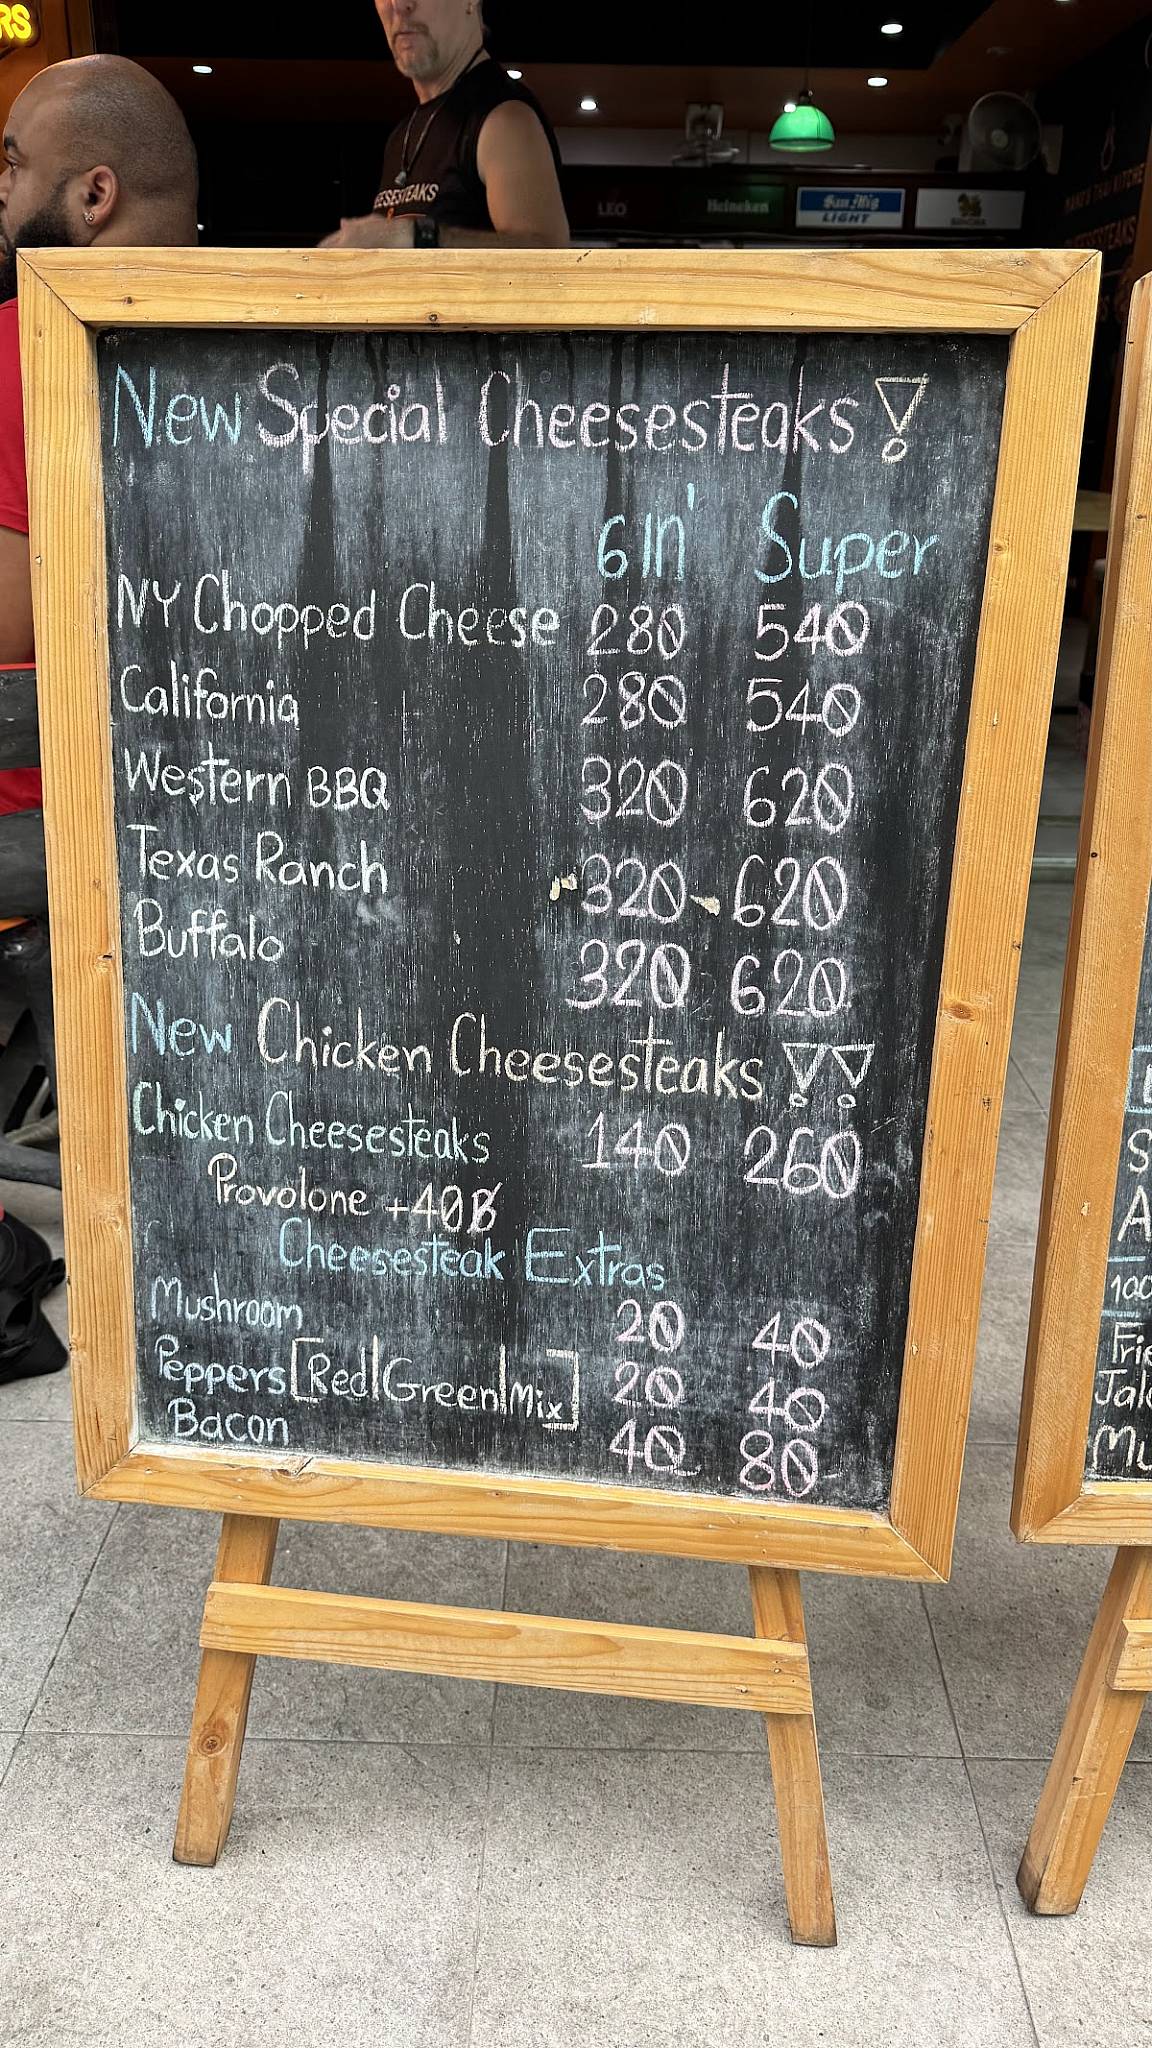 RS
EESESTEAKS
LEO
Heineken
San Mig
LIGHT
SINGHA
New Special Cheesesteaks !
6 In' Super
NY Chopped Cheese 280 540
California 280 540
Western BBQ 320 620
Texas Ranch 320 620
Buffalo 320 620
New Chicken Cheesesteaks !!
Chicken Cheesesteaks 140 260
Provolone +40฿
Cheesesteak Extras
Mushroom 20 40
Peppers [Red|Green|Mix] 20 40
Bacon 40 80
S
A
100
Frie
Jale
Mu